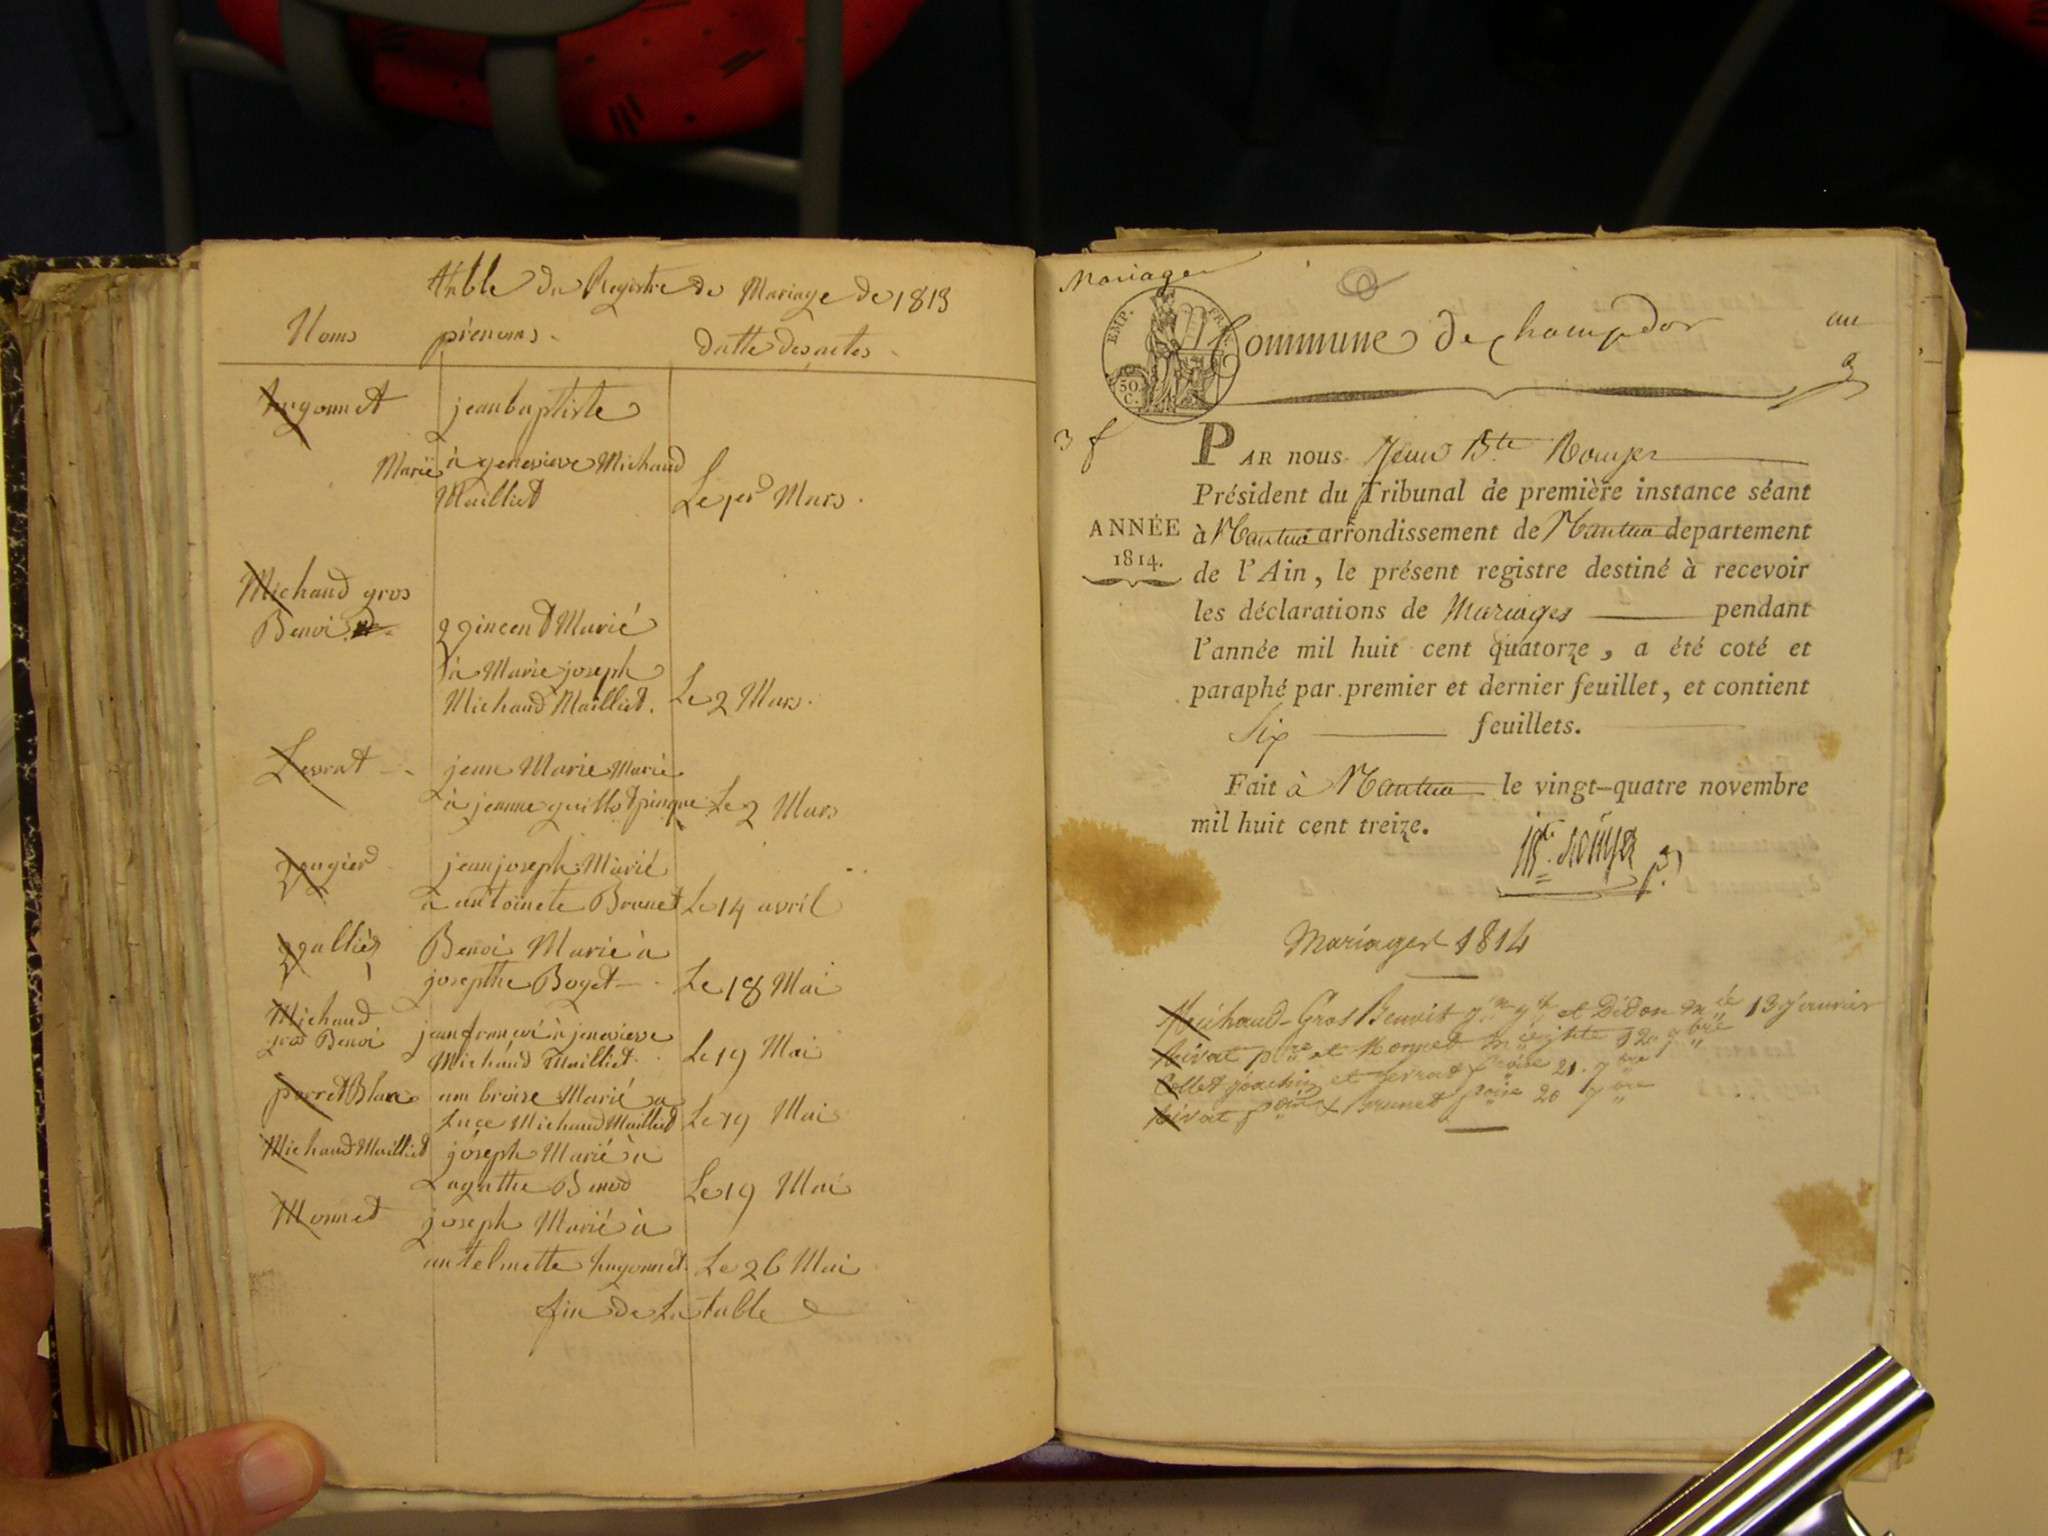 table du Registre de Mariage de 1813
Noms prénoms datte des actes
hugonnet jeanbaptiste
Marié à genevieve Michaud
Mailliet Le 1er Mars
Michaud gros
Benoi vincent Marié
à Marie joseph
Michaud Mailliet. Le 2 Mars.
Levrat jean Marie Marié
à jeanne guillot pinque Le 2 Mars
jeanjoseph Marié
à antoinete Brunet Le 14 avril
Benoi Marié à
josepthe Boget Le 18 Mai
Michaud
gros Benoi jeanfrancoi à jenevieve
Michaud Mailliet. Le 19 Mai
perret Blanc ambroise Marié a
Luce Michaud Mailliet Le 19 Mai
Michaud Mailliet joseph Marié à
agathe Benod Le 19 Mai
Monnet joseph Marié à
antelmette hugonnet. Le 26 Mai
fin de La table
Mariages
EMP. FR.
50.
C.
Commune de Champdor
3 f
PAR nous Jean Bte Rouyer
Président du Tribunal de première instance séant
ANNÉE
1814.
à Nantua arrondissement de Nantua departement
de l'Ain, le présent registre destiné à recevoir
les déclarations de Mariages pendant
l'année mil huit cent quatorze, a été coté et
paraphé par premier et dernier feuillet, et contient
Six feuillets.
Fait à Nantua le vingt-quatre novembre
mil huit cent treize.
Jn Bte Rouyer
Mariages 1814
Michaud-Gros Benoit et Didon 13 janvier
Rivat et Monnet 12
Collet joachin et Levrat 21
Rivat Brunet 20